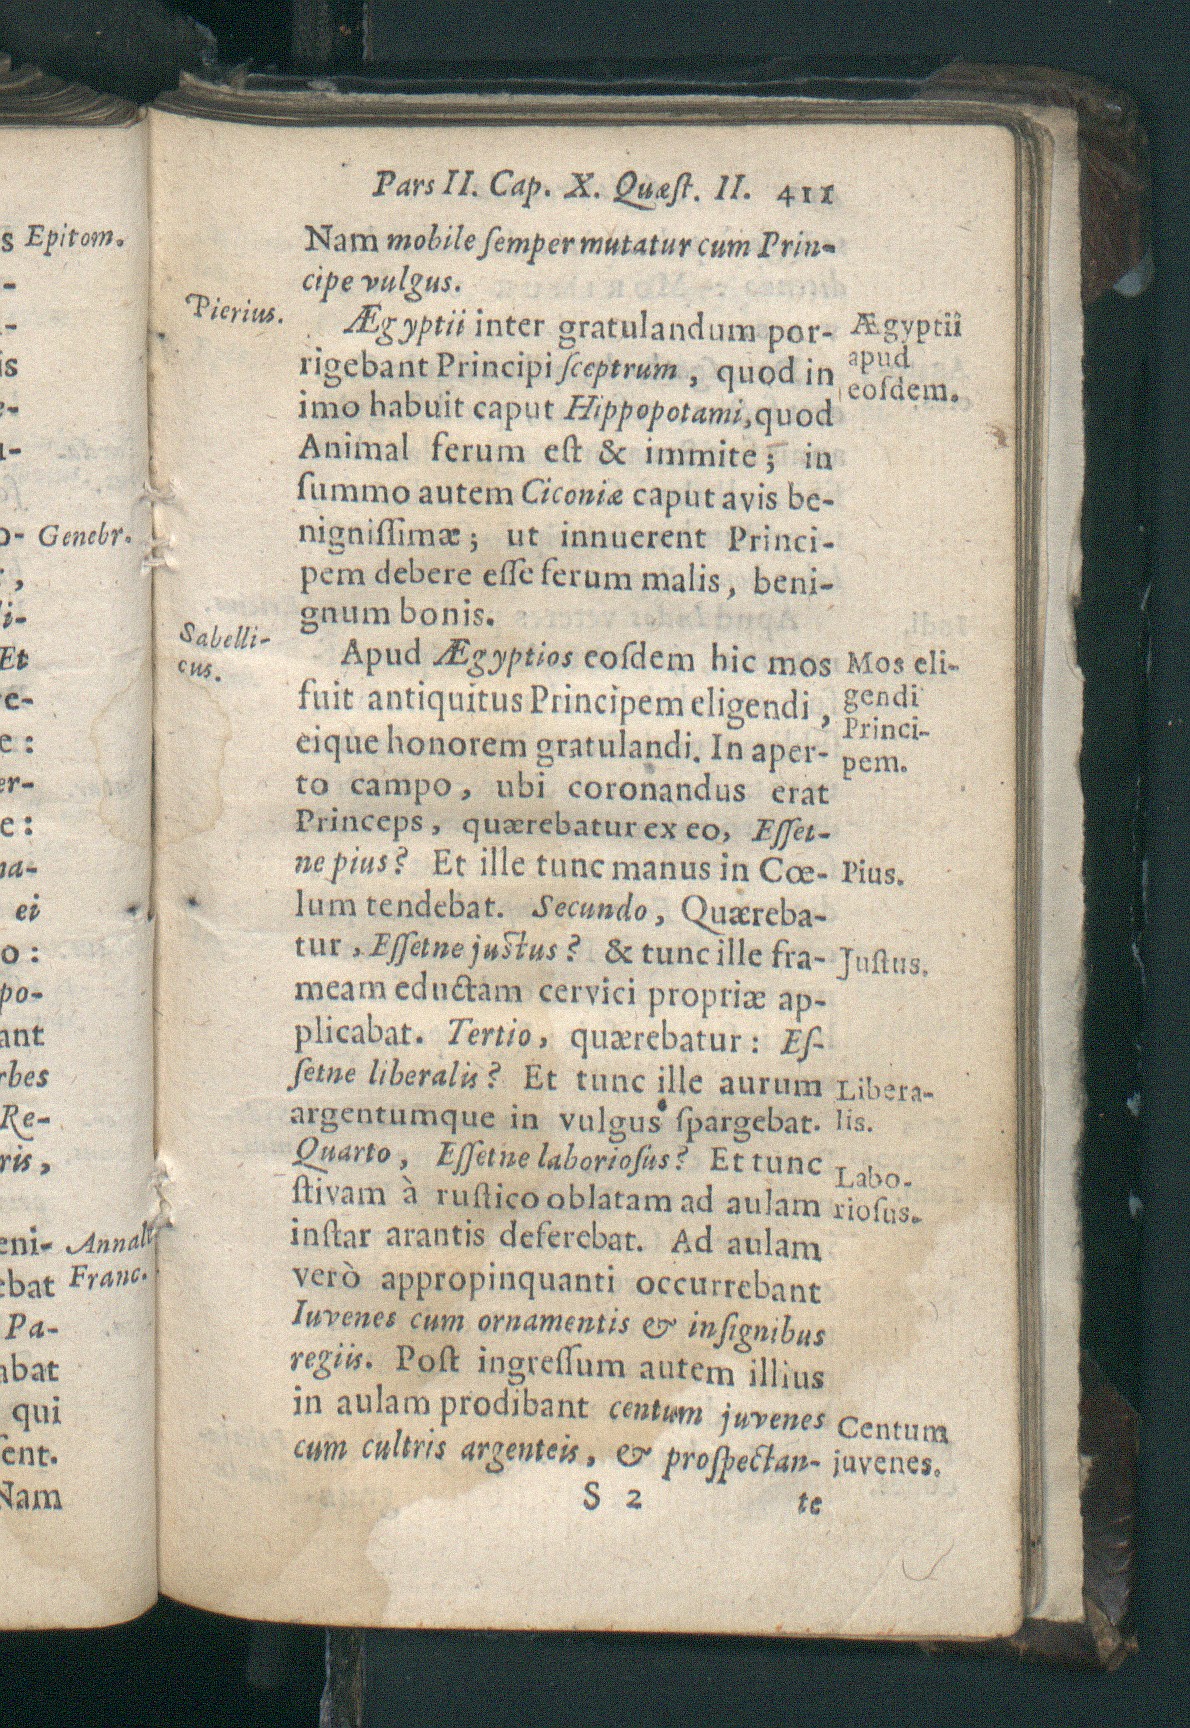 s Epitom.
-
-
is
e-
u-
o- Genebr.
,
li-
Et
e-
e:
er-
e:
na-
ei
o:
po-
ant
rbes
Re-
ris,
eni- Annall
ebat Franc.
Pa-
abat
qui
ſent.
Nam
Pars II. Cap. X. Quæſt. II. 411
Nam mobile ſemper mutatur cum Prin-
cipe vulgus.
Pierius.
Ægyptii inter gratulandum por-
rigebant Principi ſceptrum, quod in
imo habuit caput Hippopotami, quod
Animal ferum eſt & immite; in
ſummo autem Ciconiæ caput avis be-
nigniſſimæ; ut innuerent Princi-
pem debere eſſe ferum malis, beni-
gnum bonis.
Ægyptii
apud
eoſdem.
Sabelli-
cus.
Apud Ægyptios eoſdem hic mos
fuit antiquitus Principem eligendi,
eique honorem gratulandi. In aper-
to campo, ubi coronandus erat
Princeps, quærebatur ex eo, Eſſet-
ne pius? Et ille tunc manus in Cœ-
lum tendebat. Secundo, Quæreba-
tur, Eſſetne juſtus? & tunc ille fra-
meam eductam cervici propriæ ap-
plicabat. Tertio, quærebatur: Eſ-
ſetne liberalis? Et tunc ille aurum
argentumque in vulgus ſpargebat.
Quarto, Eſſetne laborioſus? Et tunc
ſtivam à ruſtico oblatam ad aulam
inſtar arantis deferebat. Ad aulam
verò appropinquanti occurrebant
Iuvenes cum ornamentis & inſignibus
regiis. Poſt ingreſſum autem illius
in aulam prodibant centum juvenes
cum cultris argenteis, & proſpectan-
Mos eli-
gendi
Princi-
pem.
Pius.
Juſtus.
Libera-
lis.
Labo-
rioſus.
Centum
juvenes.
S 2 te